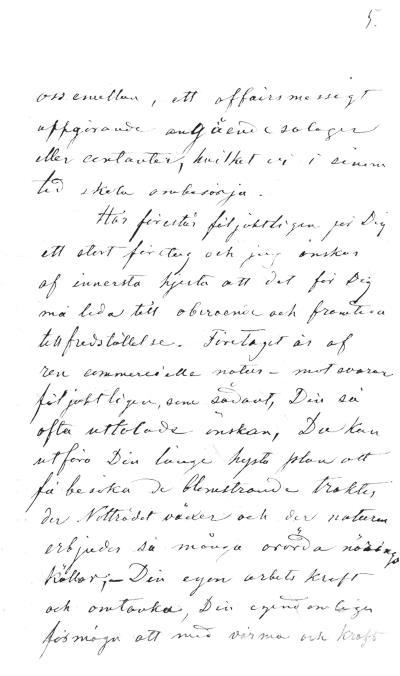 5.
oss emellan, ett affairsmessigt
uppgörande angående salager
eller contanter, hvilket vi i sinom
tid skola ombesörja.
Här förestår följaktligen för Dig
ett stort företag och jag önskar
af innersta hjerta att det för Dig
må leda till oberoende och framtida
tillfredställelse. Företaget är af
ren commerciella natur – motsvarar
följaktligen, som sådant, Din så
ofta uttalade önskan, Du kan
utföra Din länge hysta plan att
få besöka de blomstrande trakter
der Nötträdet växer och der naturen
erbjuder så många orörda närings
källor; – Din egen arbetskraft
och omtanka, Din egendomliga
förmåga att med värma och kraft